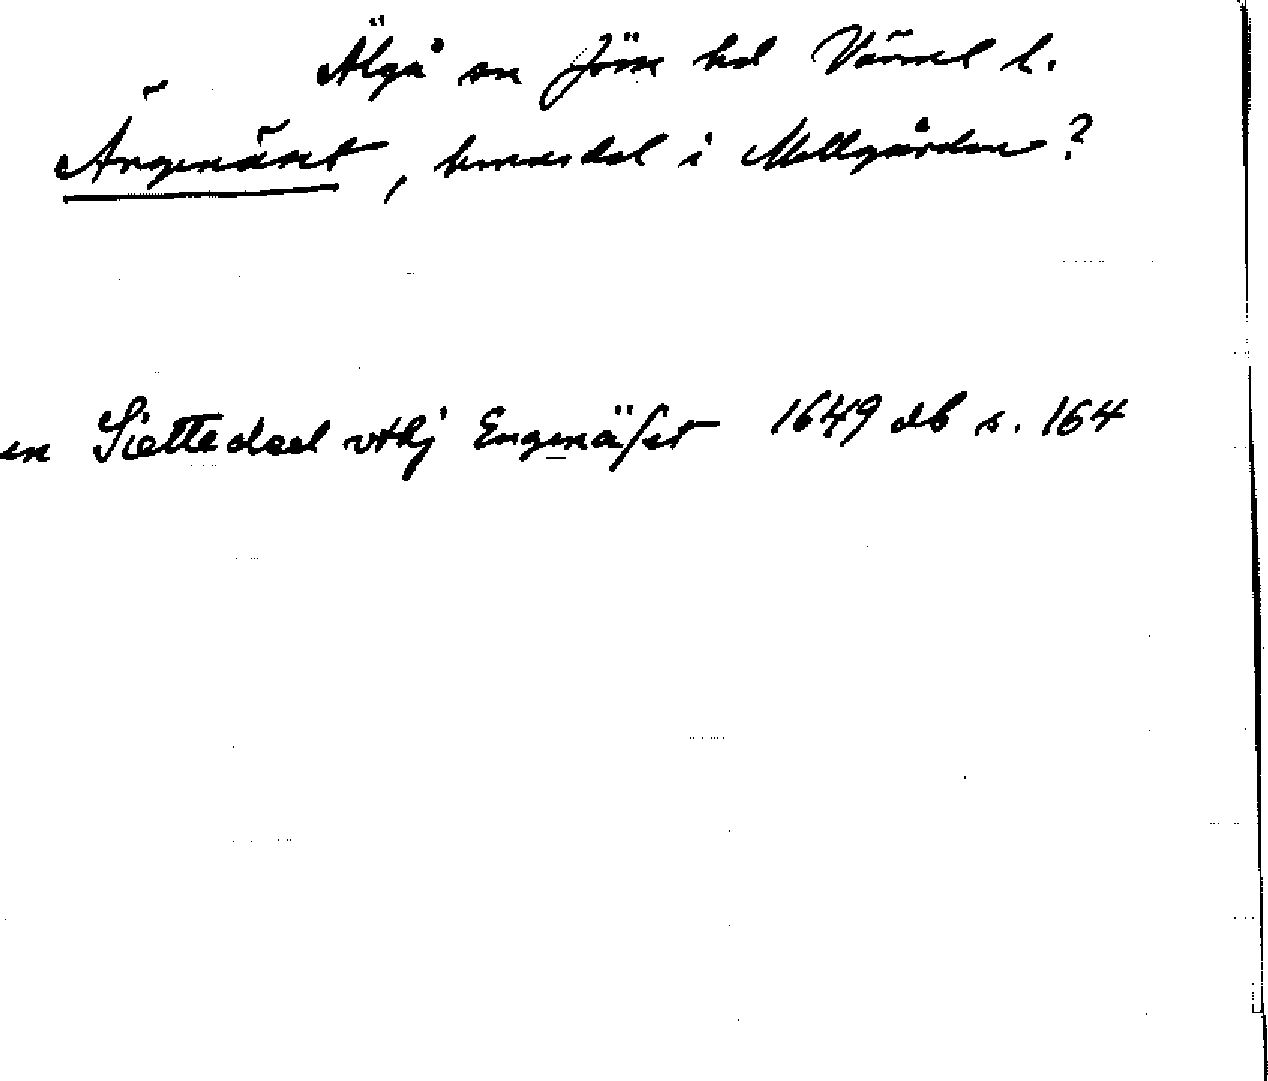 Älgå sn Jöse hd Värml l.
Ängenäset, hemmdel i Mellgården?
en Siettedeel vthj Engenäset 1649 db s. 164